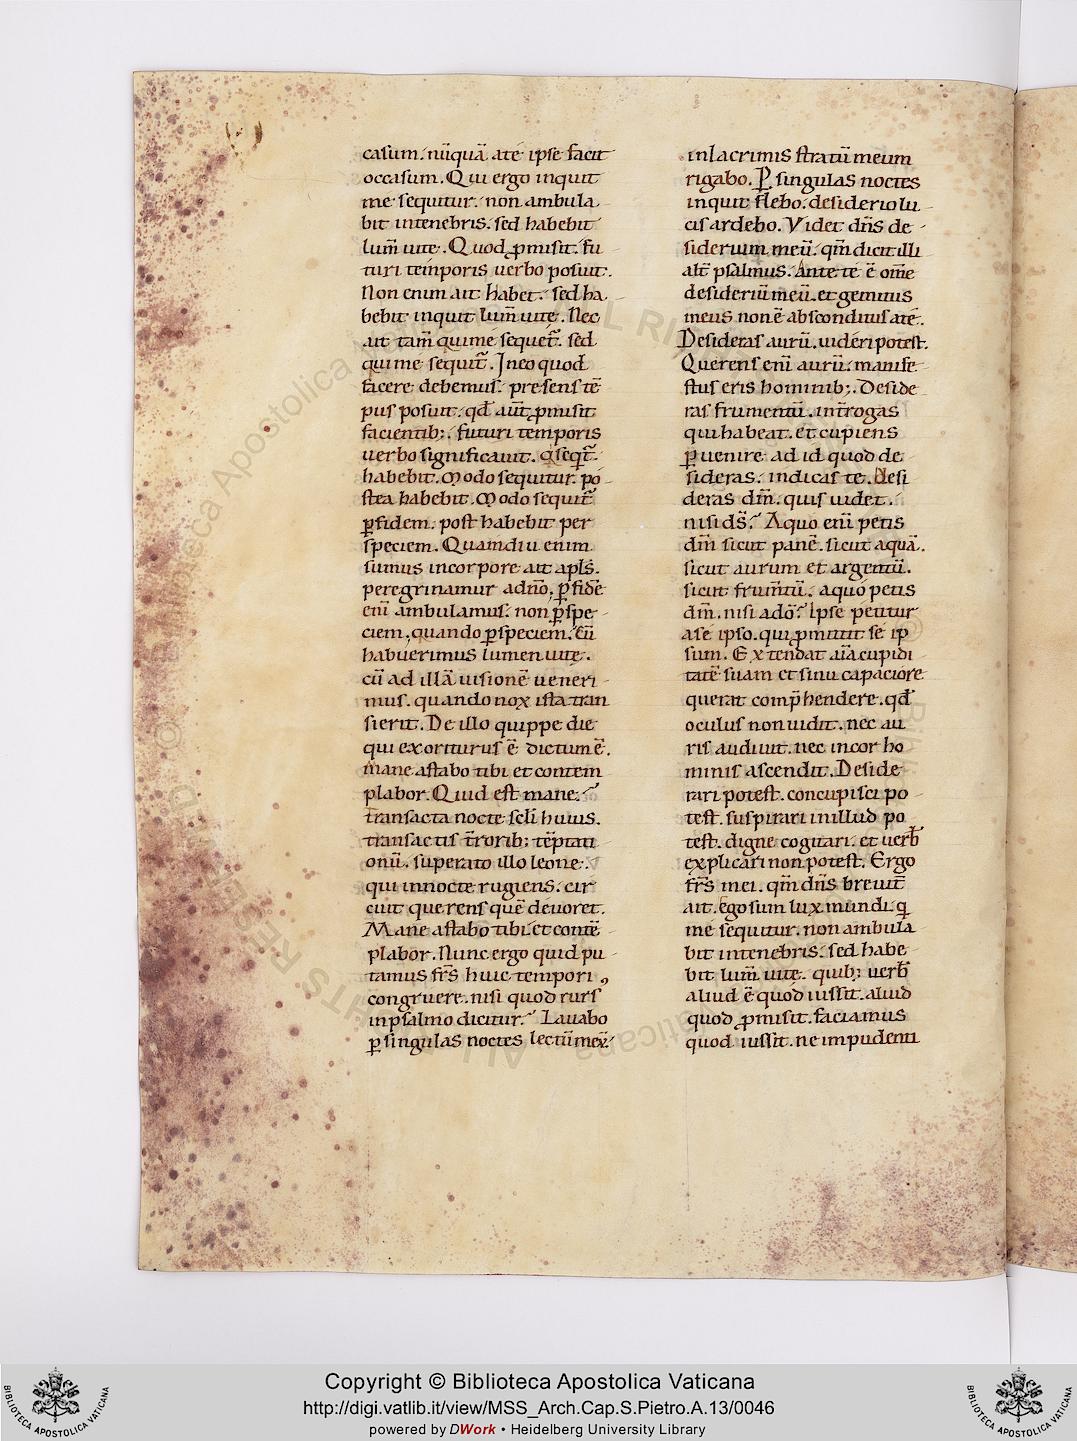 casum. nūquā a te ipse facit
occasum. Qui ergo inquit
me sequitur. non ambula
bit in tenebris. sed habebit
lum̄ uite. Quod ꝓmisit. fu
turi temporis uerbo posuit.
Non enim ait habet. sed ha
bebit inquit lum̄ uite. Nec
ait tam̄ qui me sequet̄. sed
qui me sequit̄. In eo quod
facere debemus. presens tē
pus posuit. qd̄ aut̄ ꝓmisit
facientib;. futuri temporis
uerbo significauit. q̄ seq̄t̄
habebit. Modo sequitur. po
stea habebit. Modo sequit̄
ꝑ fidem. post habebit per
speciem. Quamdiu enim
sumus in corpore ait apl̄s.
peregrinamur a dn̄o. ꝑ fidē
eni᷒ ambulamus. non ꝑ spe
ciem, quando ꝑ speciem. Cū
habuerimus lumen uite.
cū ad illā uisionē ueneri
mus. quando nox ista tran
sierit. De illo quippe die
qui exoriturus ē dictum ē.
Mane astabo tibi et contem
plabor. Quid est mane.
Transacta nocte scl̄i huius.
transactis t̄rorib; tēptati
onū. superato illo leone.
qui in nocte rugiens. cir
cuit querens quē deuoret.
Mane astabo tibi. et contē
plabor. Nunc ergo quid pu
tamus fr̄s huic tempori,
congruere. nisi quod rurs
in psalmo dicitur. Lauabo
ꝑ singulas noctes lectū meū.
in lacrimis stratū meum
rigabo. P singulas noctes
inquit flebo. desiderio lu
cis ardebo. Videt dn̄s de
siderium meū. qm̄ dicit illi
alt̄ psalmus. Ante te ē om̄e
desideriū meū. et gemitus
meus non ē absconditus a te.
Desideras aurū. uideri potest.
Querens eni᷒ aurū. manife
stus eris hominib;. Deside
ras frumentū. int̄rogas
qui habeat. et cupiens
ꝑuenire ad id quod de
sideras. indicas te. Desi
deras dm̄. quis uidet.
nisi ds̄. A quo eni᷒ petis
dm̄ sicut panē. sicut aquā.
sicut aurum et argentū.
sicut frum̄tū. a quo petis
dm̄. nisi a dō. Ipse petitur
a se ipso. qui ꝓmittit se ip
sum. Extendat aīa cupidi
tatē suam et sinu capaciore
querat comp̄hendere. qd̄
oculus non uidit. nec au
ris audiuit. nec in cor ho
minis ascendit. Deside
rari potest. concupisci po
test. suspirari in illud po
test. digne cogitari. et uerb̄
explicari non potest. Ergo
fr̄s mei. qm̄ dn̄s breuit̄
ait. Ego sum lux mundi. q̄
me sequitur. non ambula
bit in tenebris. sed habe
bit lum̄ uite. quib; uerb̄
aliud ē quod iussit. aliud
quod ꝓmisit. faciamus
quod iussit. ne impudenti
Copyright © Biblioteca Apostolica Vaticana
http://digi.vatlib.it/view/MSS_Arch.Cap.S.Pietro.A.13/0046
powered by DWork • Heidelberg University Library